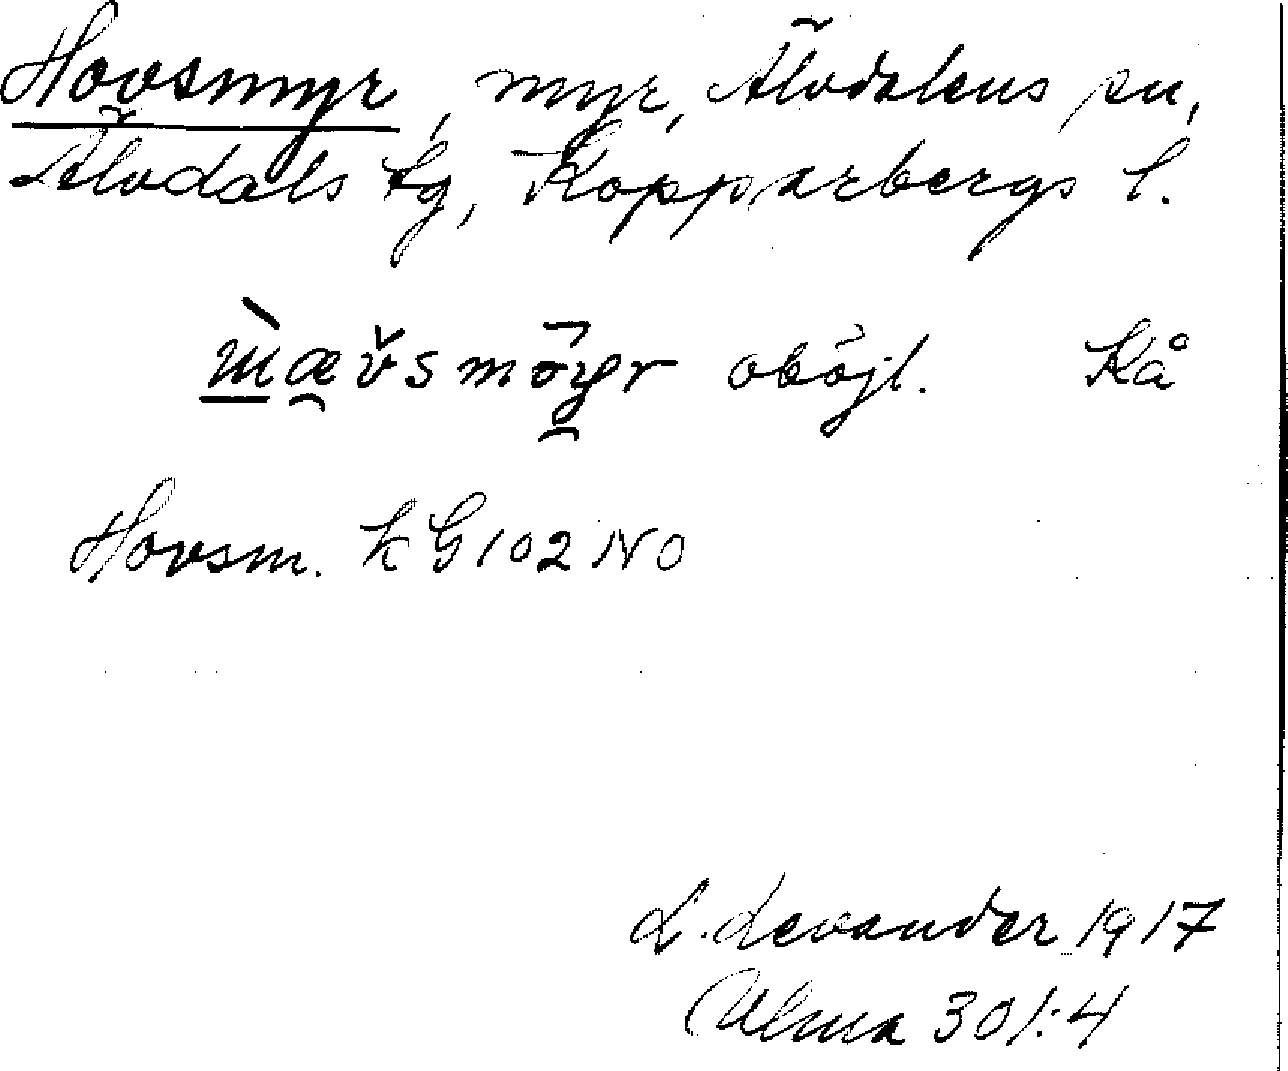 Hovsmyr, myr, Älvdalens sn,
Älvdals tg, Kopparbergs l.
oböjl. Kå
Hovsm. k G 102 NO
L. Levander 1917
Ulma 301:4